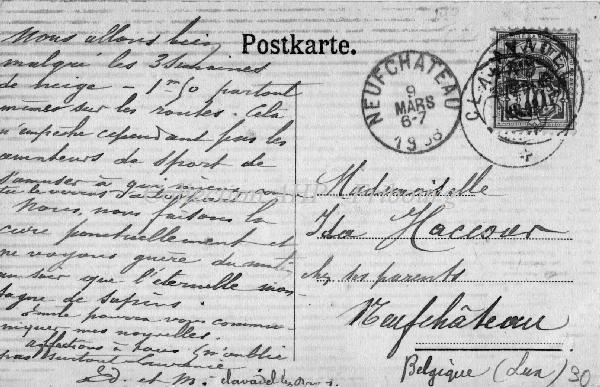 Nous allons bien
malgré les 3 semaines
de neige - 1m50 partout
même sur les routes. Cela
n'empêche cependant pas les
amateurs de sport de
s'amuser à que mieux
Nous, nous faisons la
cure ponctuellement et
ne voyons guère du matin
au soir que l'éternelle mon-
tagne de sapins.
pouvez vous commu-
niquer mes nouvelles.
affections à tous N'oublie
pas surtout
Ed. et M. Clavadel
Postkarte.
NEUFCHATEAU
9
MARS
6-7
CLAVADEL
Mademoiselle
Ida
chez ses parents
Neufchâteau
Belgique (Lux)
30